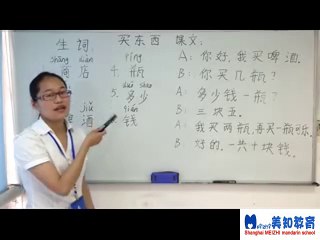 生词 买东西 课文:
shāng diàn píng
商店 4. 瓶
duō shǎo
5. 多少
jiǔ qián
酒 钱
A: 你好,我买啤酒.
B: 你买几瓶?
A: 多少钱一瓶?
B: 三块五.
A: 我买两瓶,再买一瓶可乐.
B: 好的.一共十块钱.
美知教育
Shanghai MEIZHI mandarin school